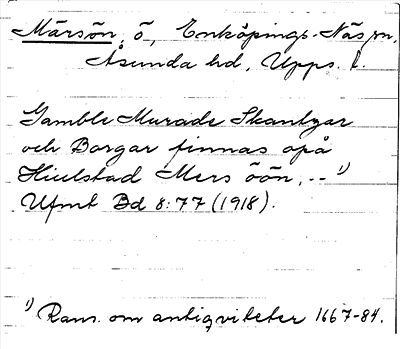 Märsön, ö, Enköpings-Näs sn,
Åsunda hd, Upps. l.
Gamble Murade Skantzar
och Borgar finnas opå
Hielstad Mers öön, -- 1)
Ufmt Bd 8:77 (1918).
1) Rans. om antiqviteter 1667-84.